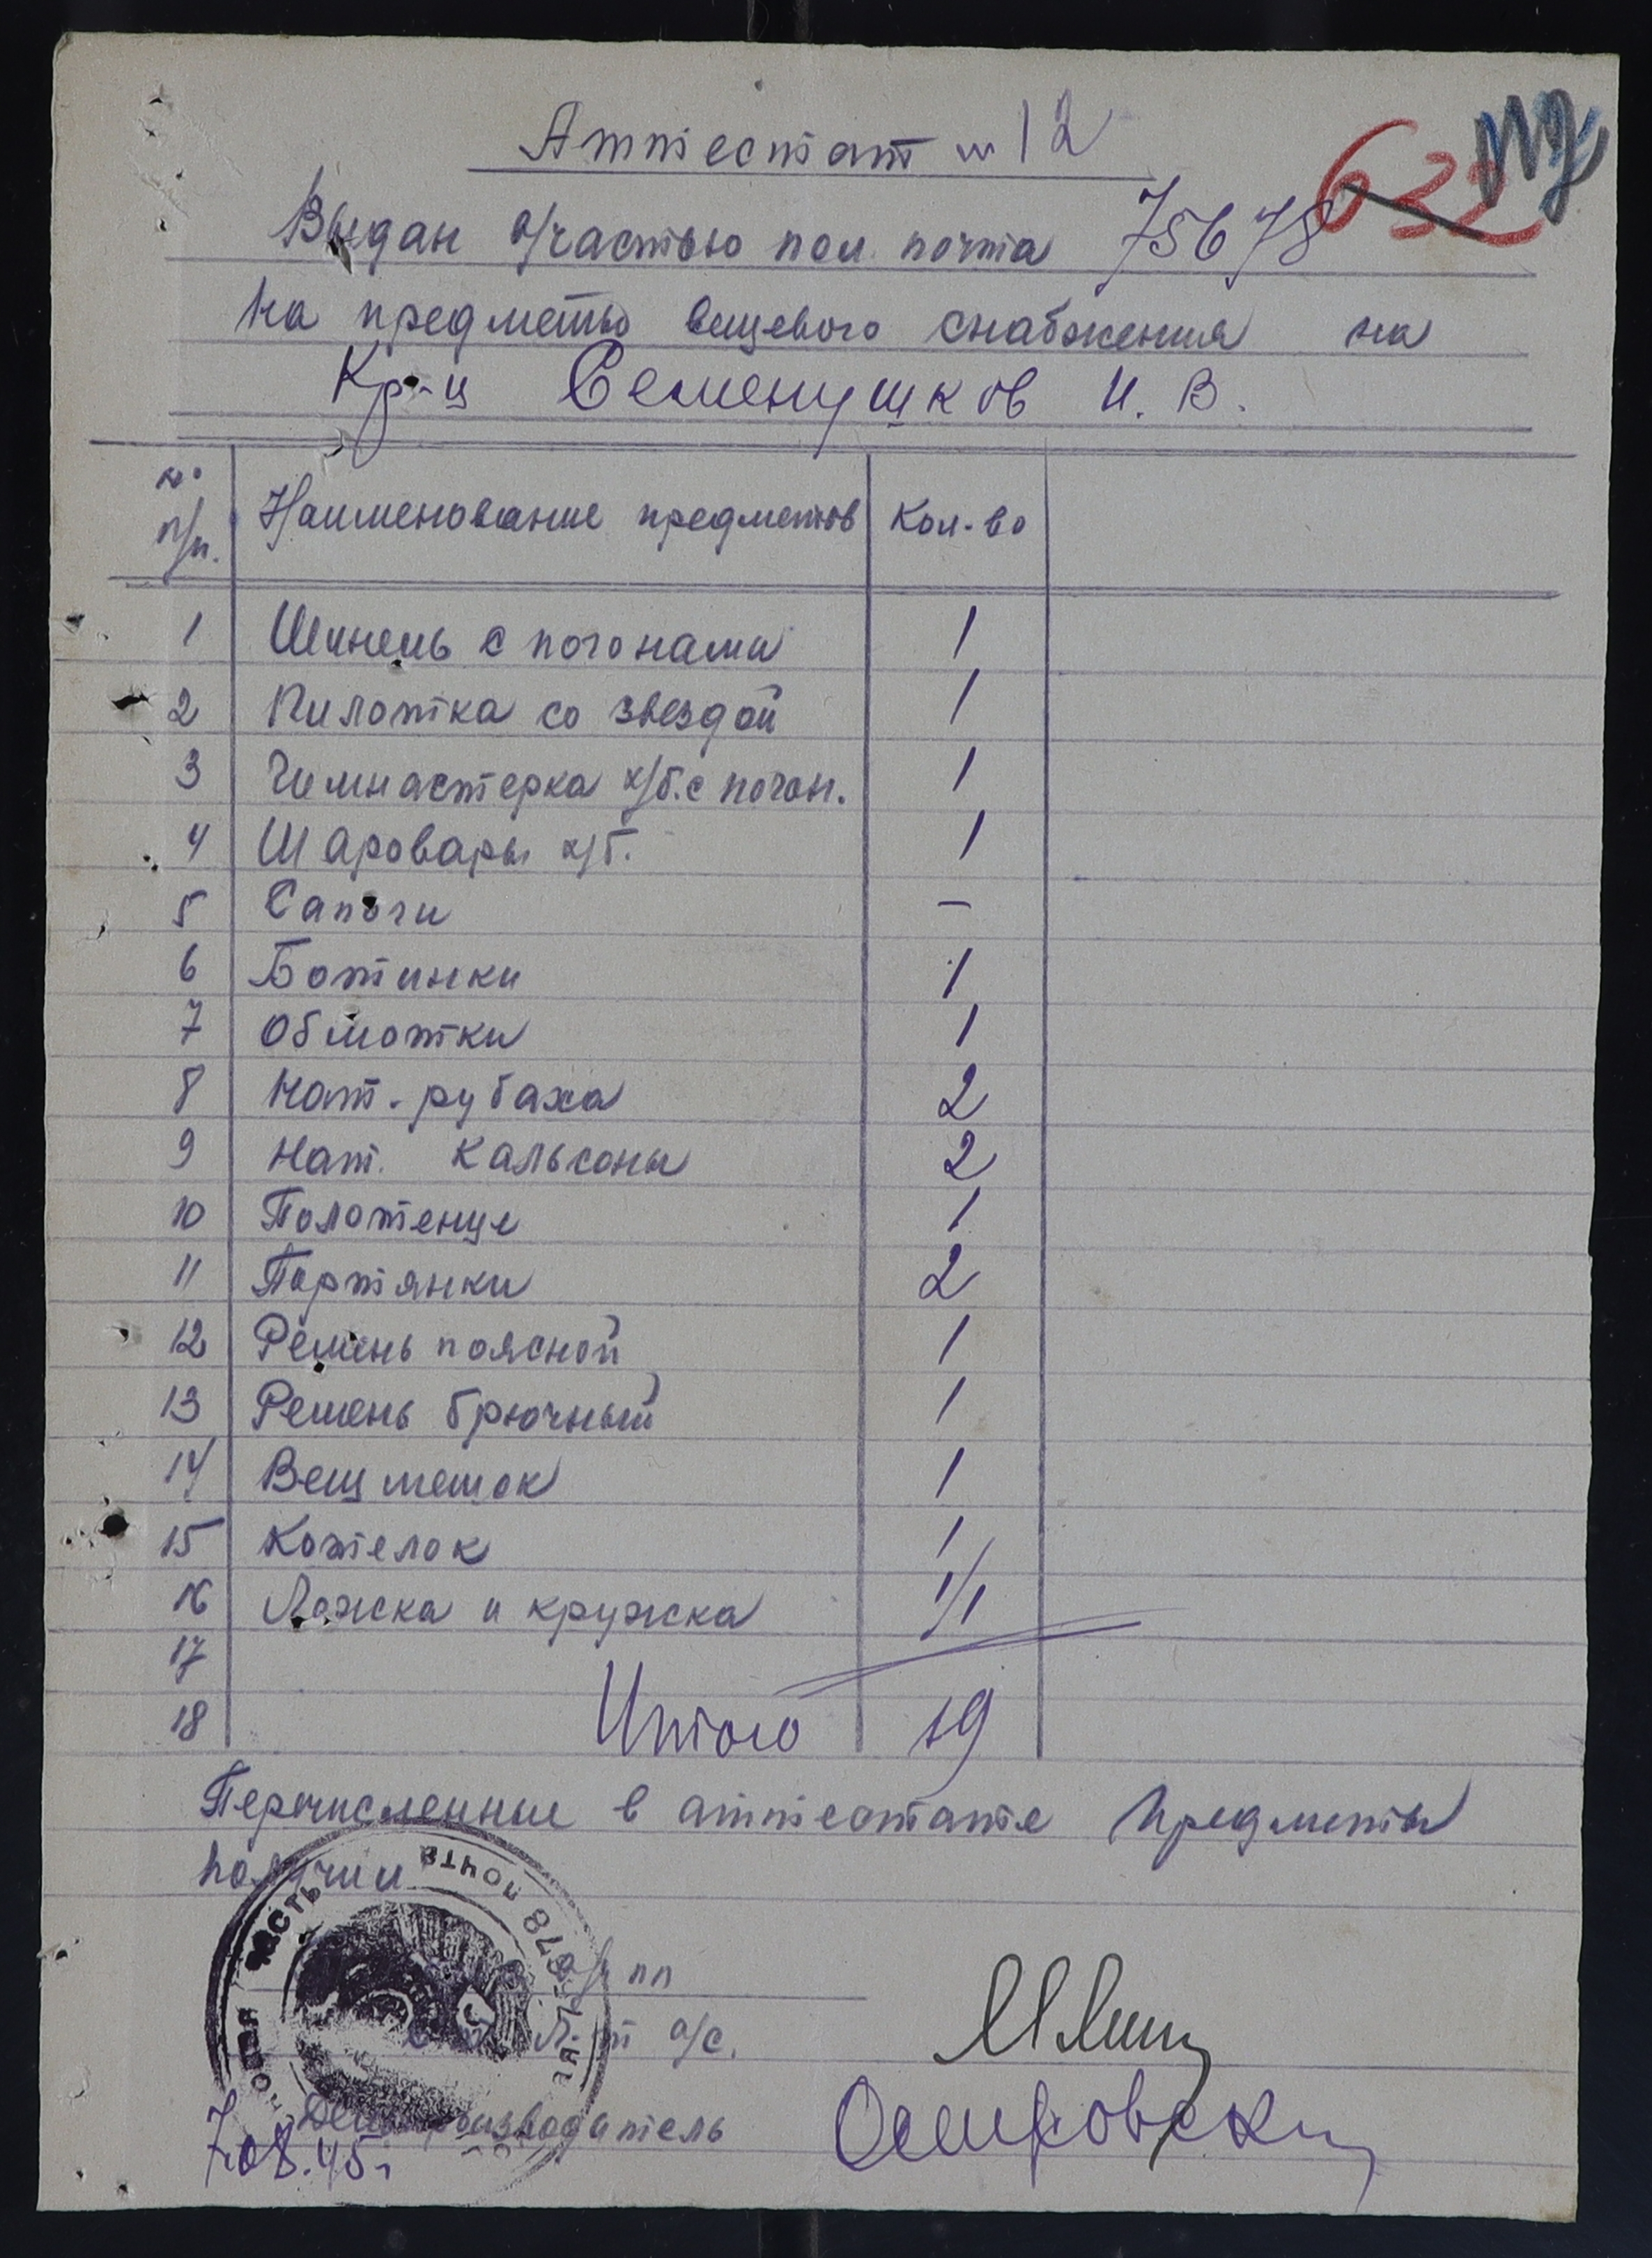 Аттестат № 12
632
Выдан в/частью пол. почта 75678
на предметы вещевого снабжения на
Кр-ц Семенушков И. В.
№ п/п. Наименование предметов Кол-во
1 Шинель с погонами 1
2 Пилотка со звездой 1
3 Гимнастерка х/б. с погон. 1
4 Шаровары х/б. 1
5 Сапоги —
6 Ботинки 1
7 Обмотки 1
8 Нат. рубаха 2
9 Нат. кальсоны 2
10 Полотенце 1
11 Портянки 2
12 Ремень поясной 1
13 Ремень брючный 1
14 Вещмешок 1
15 Котелок 1
16 Ложка и кружка 1/1
17
18 Итого 19
Перечисленные в аттестате предметы
получил
в/ч пп
л-т а/с.
Делопроизводитель
7.08.45г